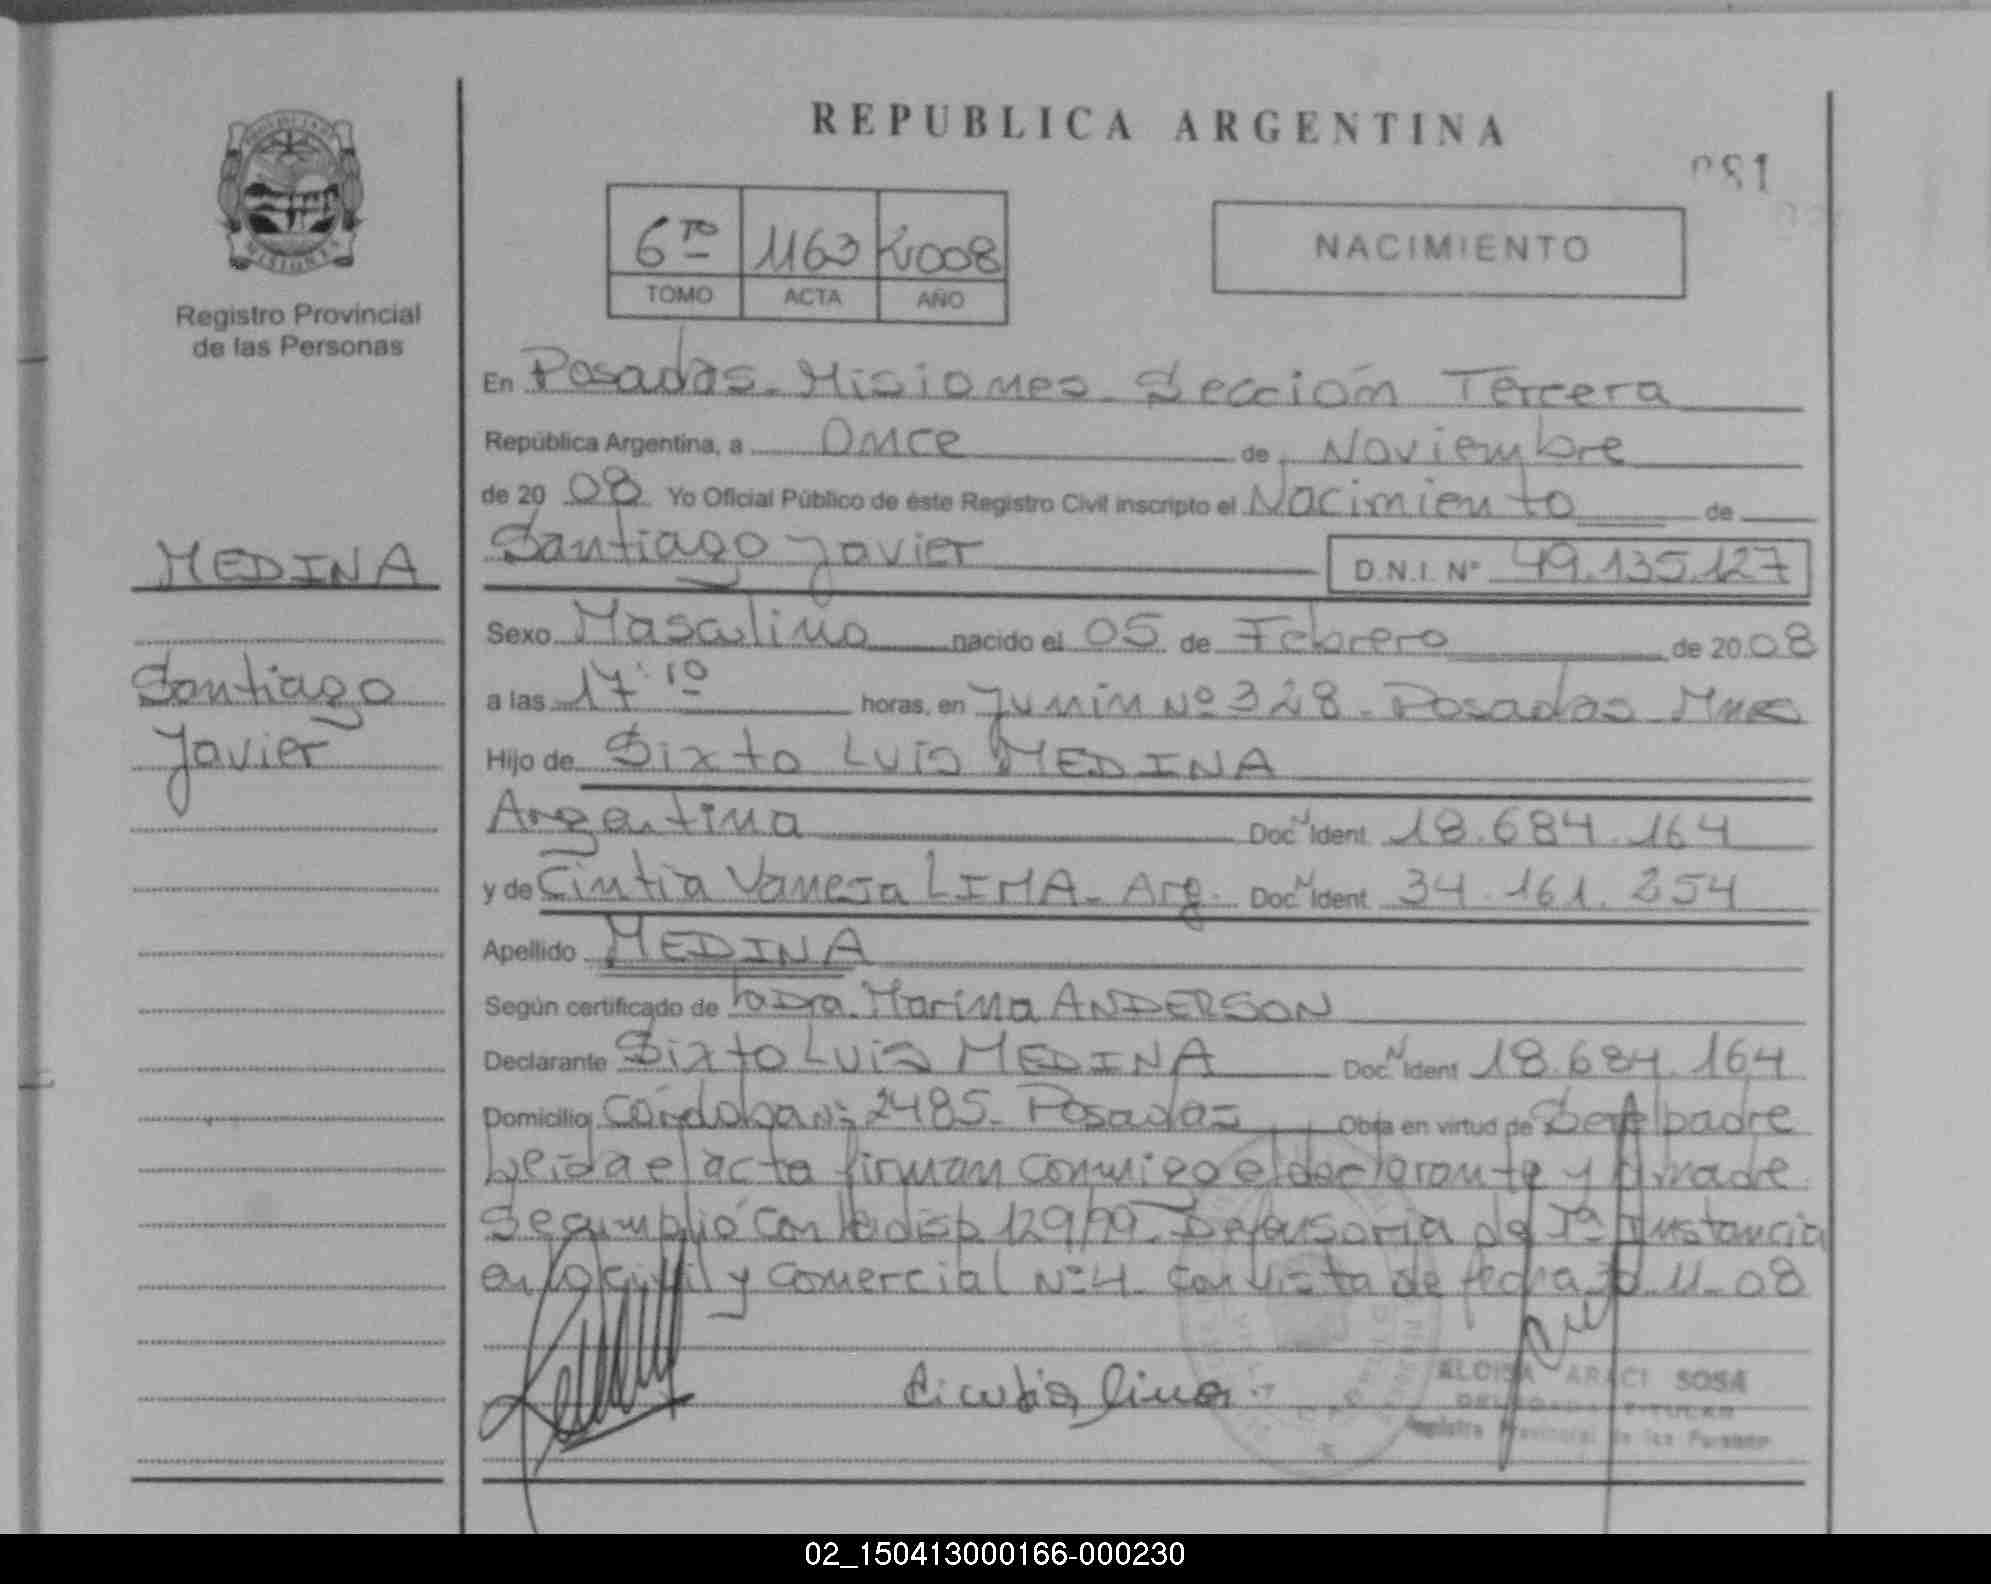 REPUBLICA ARGENTINA
081
6TO 1163 2008
TOMO ACTA AÑO
NACIMIENTO
MISIONES
Registro Provincial
de las Personas
En Posadas - Misiones - Sección Tercera
República Argentina, a Once de Noviembre
de 20 08 Yo Oficial Público de éste Registro Civil inscripto el Nacimiento de
Santiago Javier D.N.I. Nº 49.135.127
MEDINA
Santiago
Javier
Sexo Masculino nacido el 05 de Febrero de 20 08
a las 17:10 horas, en Junin Nº 328 - Posadas Mnes
Hijo de Sixto Luis MEDINA
Argentina Doc. N Ident. 18.684.164
y de Cintia Vanesa LIMA - Arg. Doc. N Ident. 34.161.254
Apellido MEDINA
Según certificado de la Dra. Marina ANDERSON
Declarante Sixto Luis MEDINA Doc. N Ident 18.684.164
Domicilio Córdoba Nº 2485 - Posadas Obra en virtud de Ser el padre
Leida el acta firman conmigo el declarante y madre
Se cumplió con la disp 129/99 - Defensoria de 1ª Instancia
en lo civil y Comercial Nº 4 con vista de fecha 11-08
Cintia Lima
ALOISA ARACI SOSA
DELEGADA TITULAR
Registro Provincial de las Personas
02_150413000166-000230